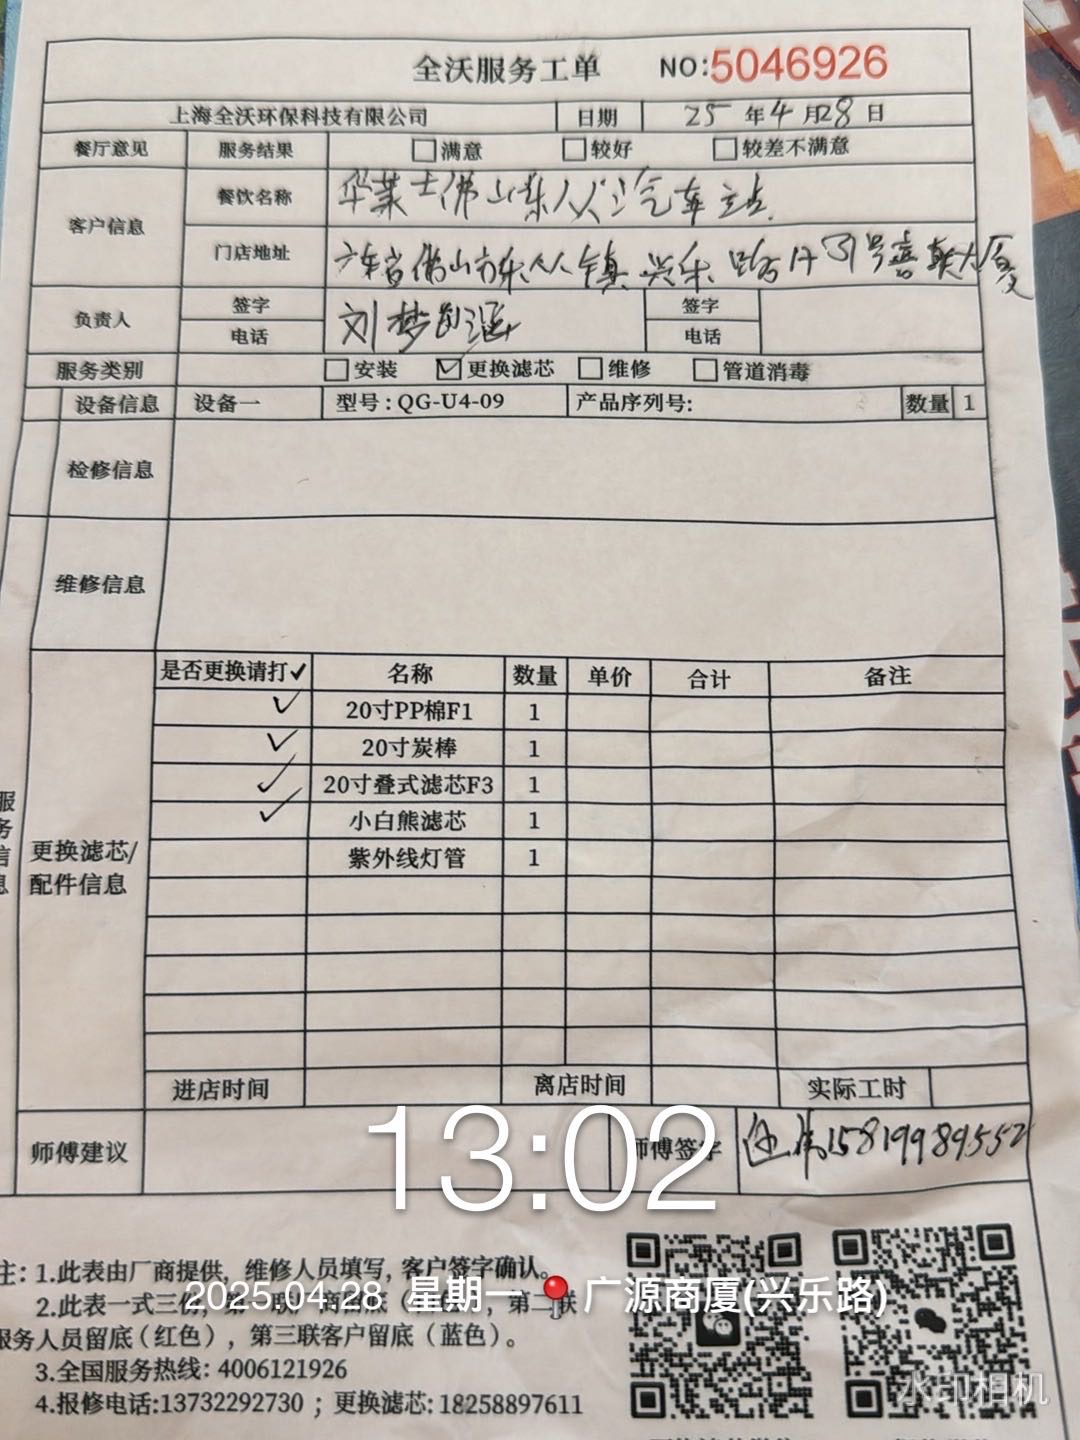 全沃服务工单 NO:5046926
上海全沃环保科技有限公司 日期 25 年 4 月 28 日
餐厅意见 服务结果 □满意 □较好 □较差不满意
客户信息 餐饮名称 华莱士佛山 汽车
门店地址 佛山市 镇兴乐路 号喜 大厦
负责人 签字 刘梦 签字
电话 电话
服务类别 □安装 ☑更换滤芯 □维修 □管道消毒
设备信息 设备一 型号:QG-U4-09 产品序列号: 数量 1
检修信息
维修信息
是否更换请打✓ 名称 数量 单价 合计 备注
✓ 20寸PP棉F1 1
✓ 20寸炭棒 1
✓ 20寸叠式滤芯F3 1
✓ 小白熊滤芯 1
紫外线灯管 1
服务信息
更换滤芯/
配件信息
进店时间 离店时间 实际工时
师傅建议 师傅签字 15819989552
13:02
注: 1.此表由厂商提供, 维修人员填写, 客户签字确认。
2.此表一式三 第二联
服务人员留底(红色), 第三联客户留底(蓝色)。
2025.04.28 星期一 广源商厦(兴乐路)
3.全国服务热线: 4006121926
4.报修电话:13732292730 ; 更换滤芯: 18258897611
水印相机